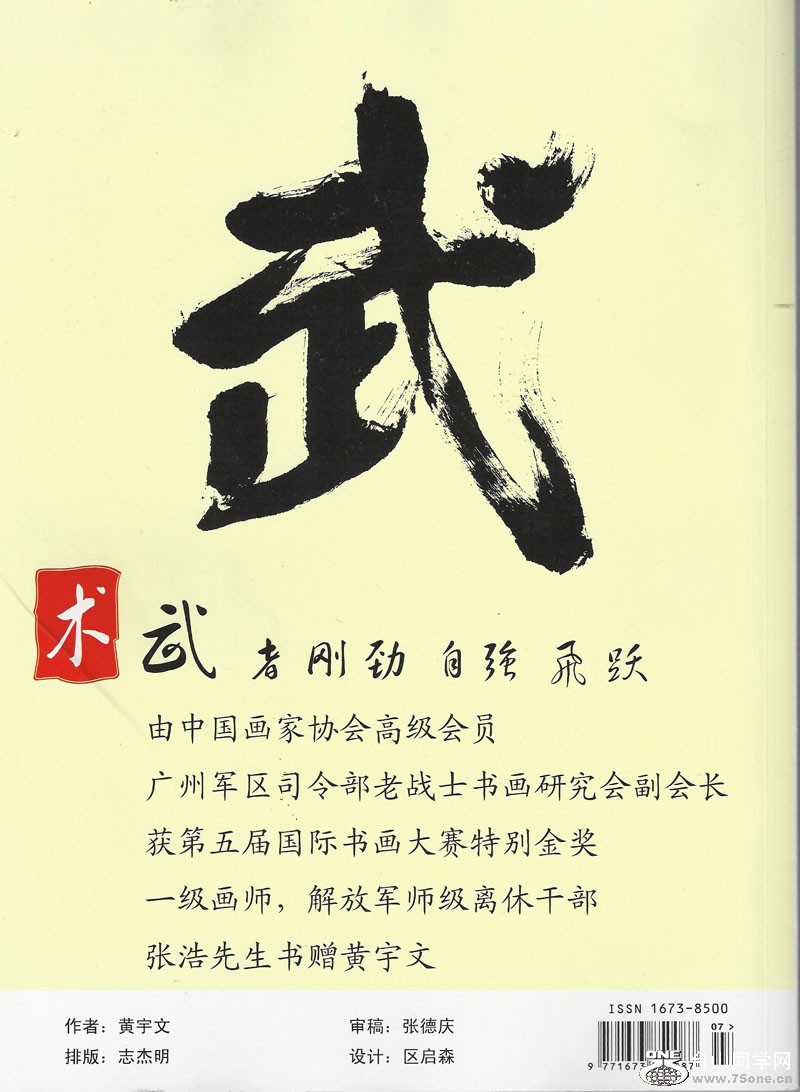 武
术
武者刚劲自強飛跃
由中国画家协会高级会员
广州军区司令部老战士书画研究会副会长
获第五届国际书画大赛特别金奖
一级画师，解放军师级离休干部
张浩先生书赠黄宇文
作者：黄宇文
审稿：张德庆
排版：志杰明
设计：区启森
ISSN 1673-8500
07>
9 771673
ONE
台山同学网
www.75one.cn